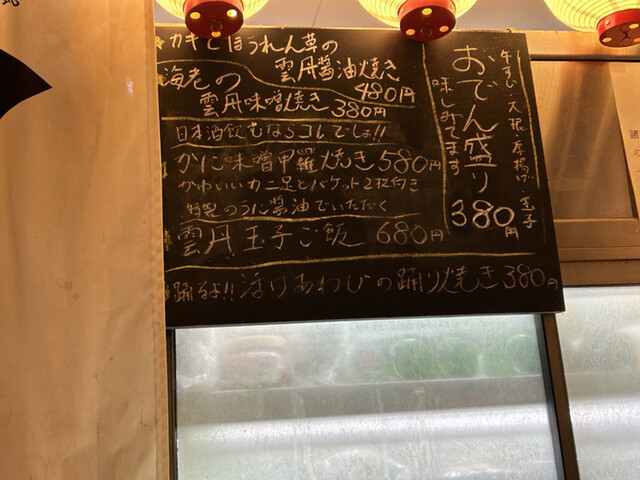 カキとほうれん草の
雲丹醤油焼き
480円
海老の
雲丹味噌焼き
380円
日本酒飲むならコレでしょ!!
かに味噌甲羅焼き580円
かわいいカニ足とバケット2枚付き
特製のうに醤油でいただく
雲丹玉子ご飯 680円
踊るよ!!活けあわびの踊り焼き380円
牛すじ 大根 厚揚げ 玉子
おでん盛り
味しみてます
380円